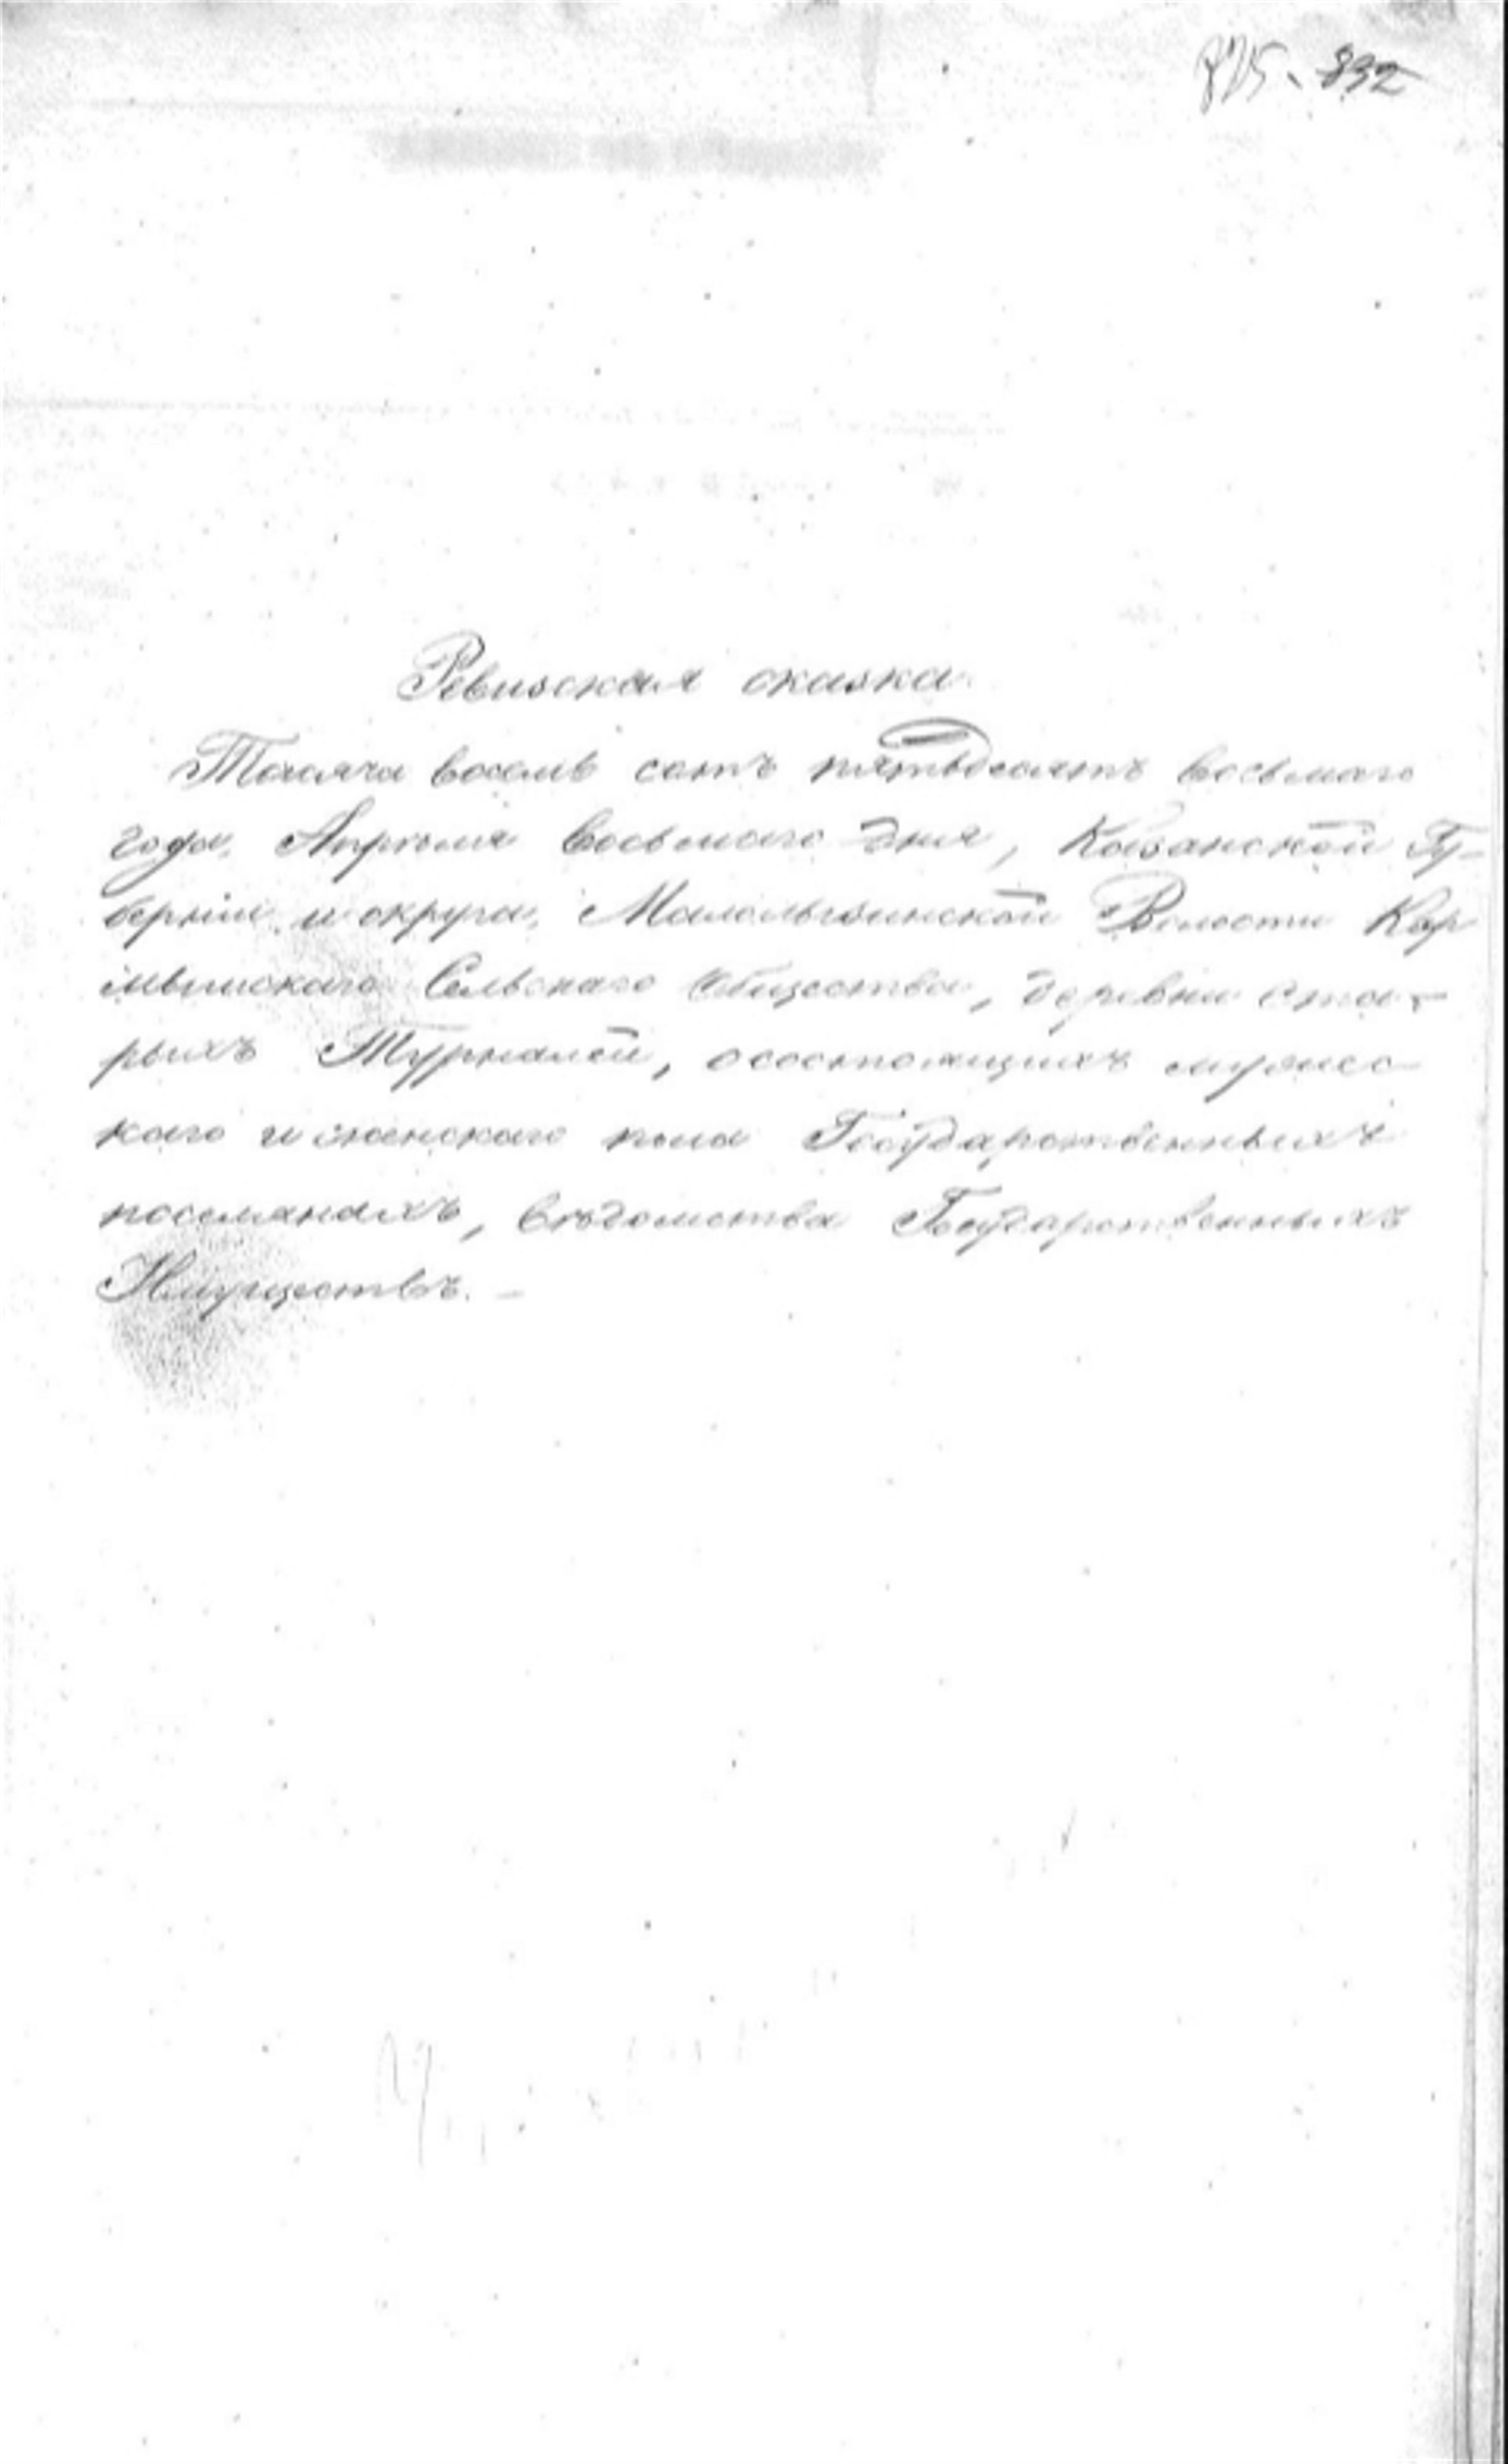 825-832
Ревизская сказка
Тысяча восемь сотъ пятьдесятъ восьмаго
года, Апрѣля восьмаго дня, Казанской Гу-
берніи и округа, Волости Кар
Сельскаго Общества, деревни Ста-
рыхъ Турналей, о состоящихъ мужес-
каго и женскаго пола Государственныхъ
поселянахъ, вѣдомства Государственныхъ
Имуществъ. —